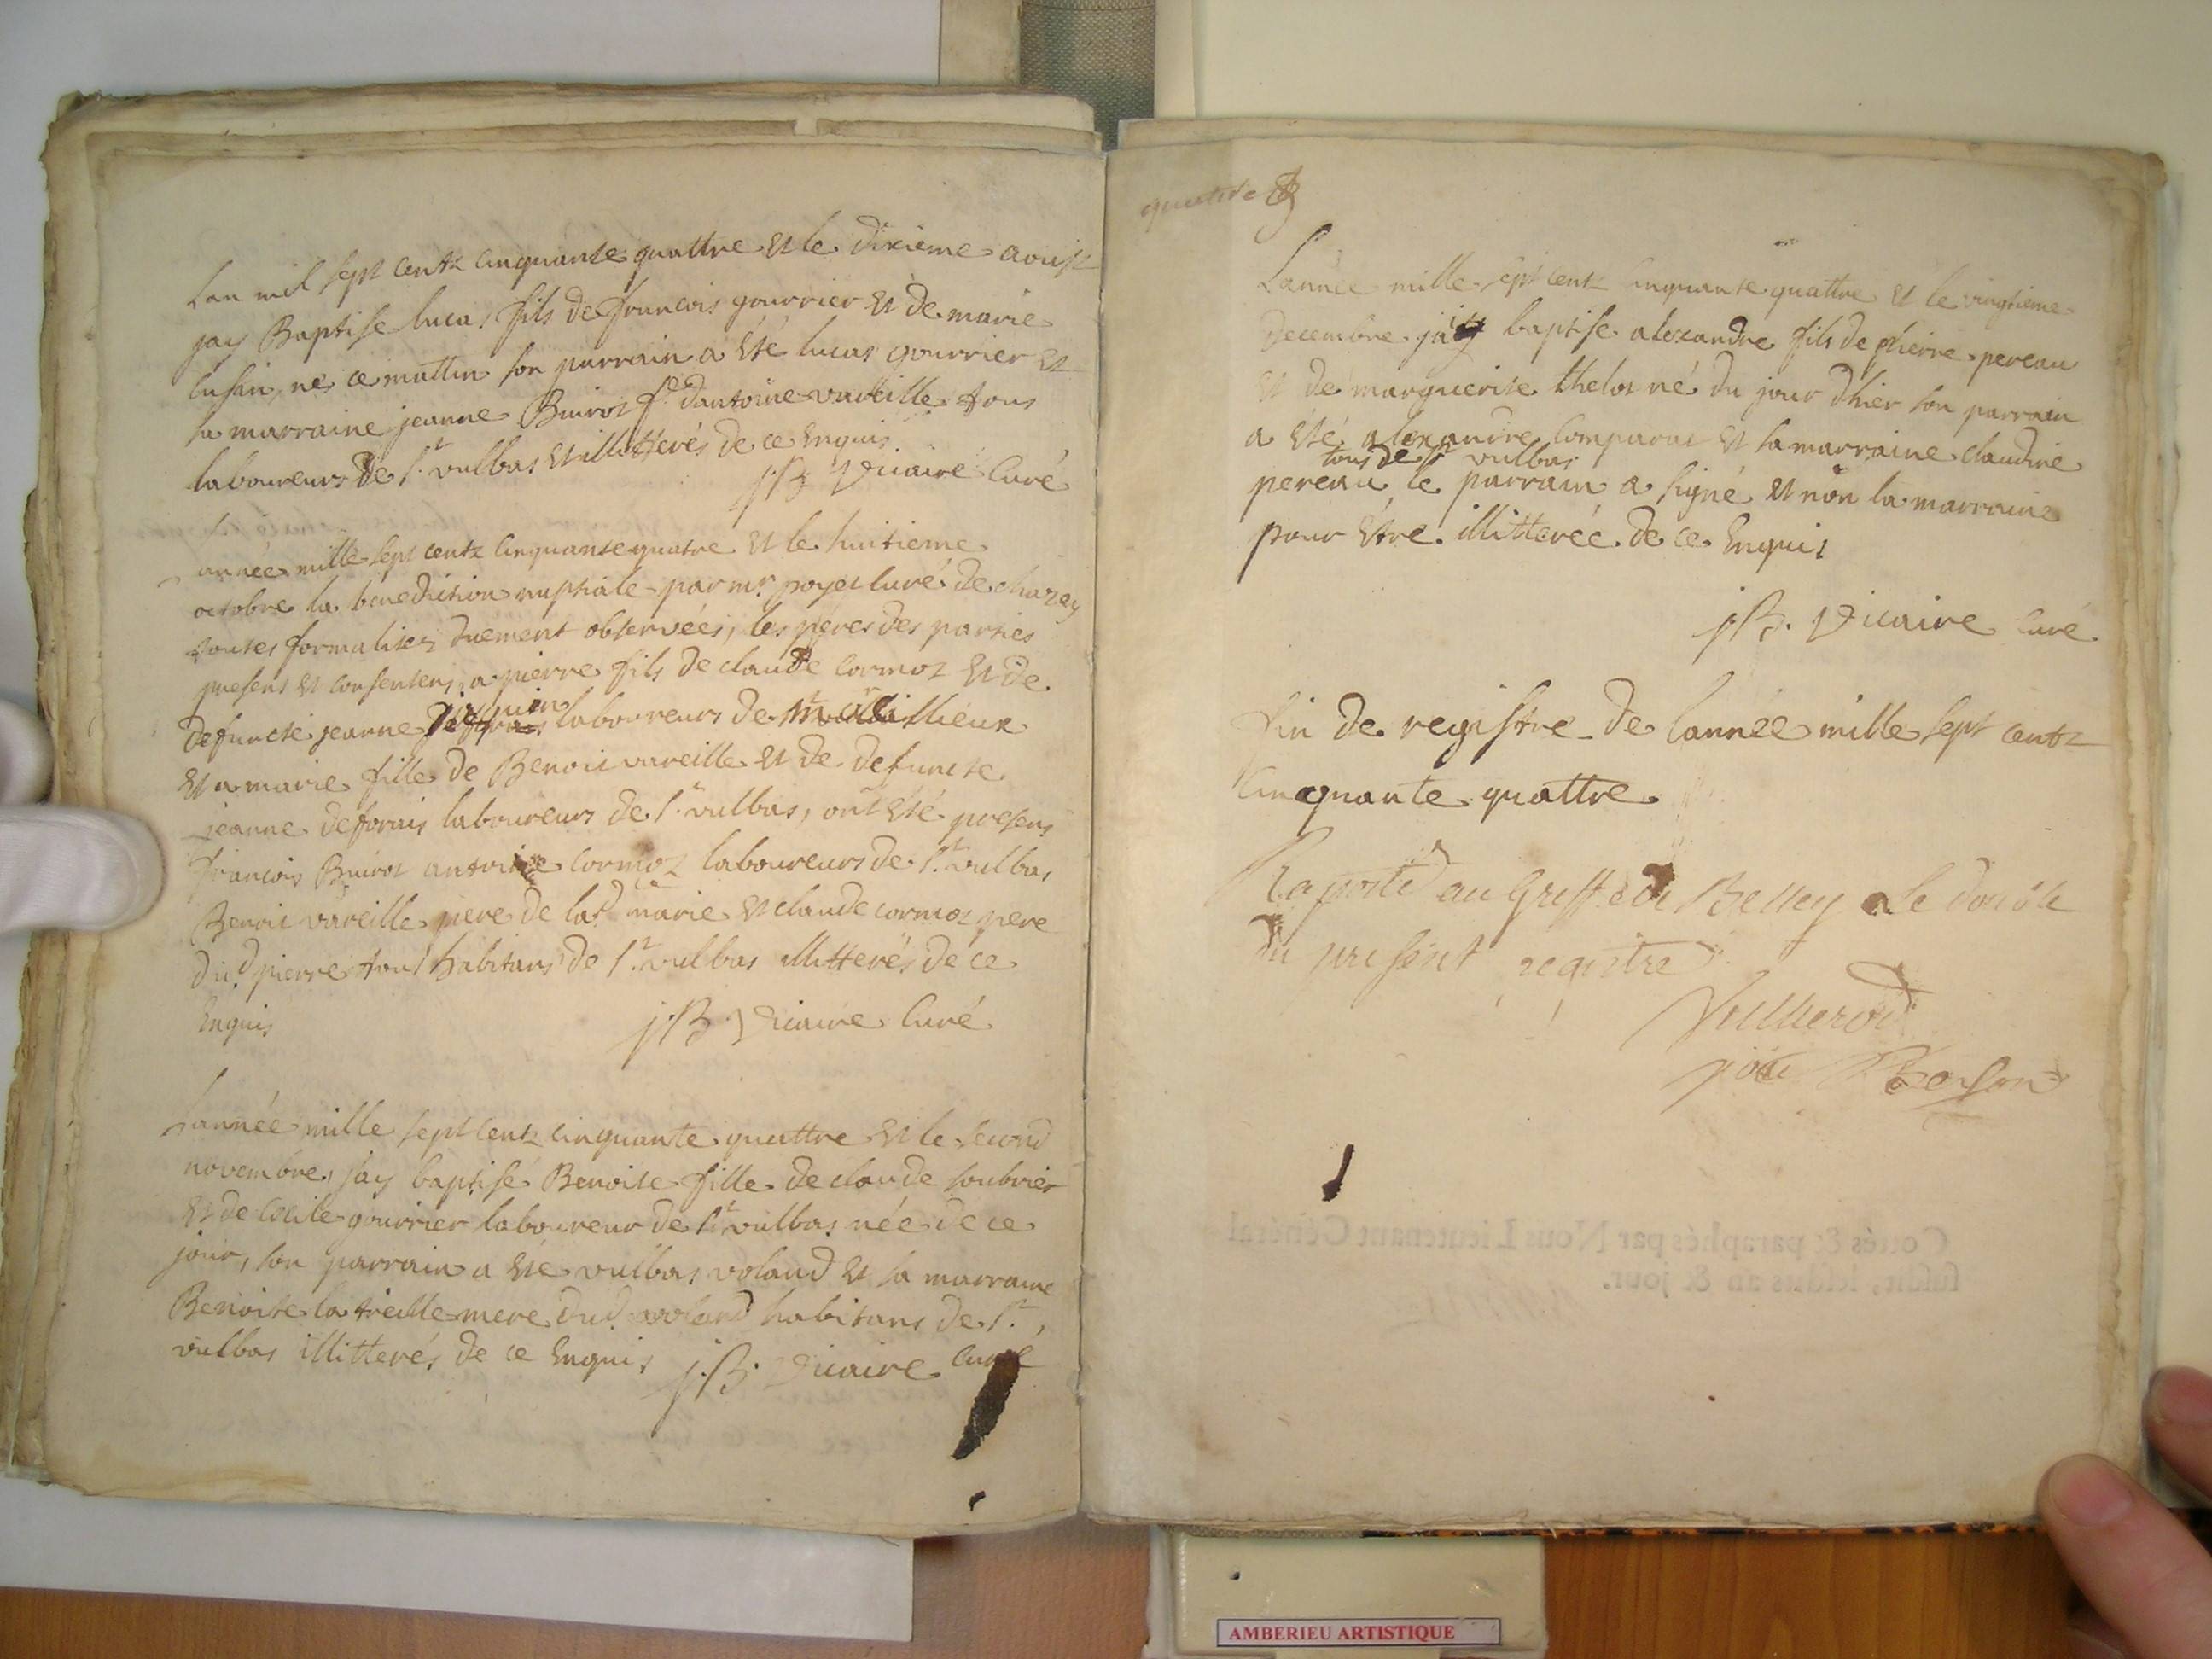 Lan mil sept centz cinquante quattre et le dixieme aoust
jay Baptise lucas fils de francois gourrier et de marie
lusin, ne ce mattin son parrain a été lucas gourrier et
sa marraine jeanne Buirot fe. dantoine vareille tous
laboureurs de st vulbas et illitterés de ce enquis
j.B. Vicaire Curé
Lannée mille sept centz cinquante quatre et le huitieme
octobre la benediction nuptiale par mr. poyet curé de chazey
toutes formalites duement observées, les peres des parties
presens et consentens, a pierre fils de claude cormoz et de
defuncte jeanne laboureurs de
et a marie fille de Benoit vareille et de defuncte
jeanne deforais laboureurs de st. vulbas, ont été presens
francois Buirot antoine cormoz laboureurs de st. vulbas
Benoit vareille pere de lad. marie et claude cormoz pere
dud. pierre tous habitans de st. vulbas illitterés de ce
enquis
j.B. Vicaire Curé
Lannée mille sept centz cinquante quattre et le second
novembre jay baptisé Benoite fille de claude soubrier
et de Cecile gourrier laboureur de st vulbas née de ce
jour, son parrain a été vulbas voland et sa marraine
Benoite la treille mere dud. voland habitans de st.
vulbas illitterés de ce enquis
j.B. Vicaire curé
quattre
Lannée mille sept centz cinquante quattre et le vingtieme
decembre jay baptise alexandre fils de pierre pereau
et de marguerite thelot né du jour dhier son parrain
a été alexandre comparat et sa marraine claudine
tous de st vulbas
pereau, le parrain a signé et non la marraine
pour être illitterée de ce enquis
j.B. Vicaire curé
fin de registre de lannée mille sept centz
cinquante quattre
Raporté au Greffe de Belley le double
du present registre
Cottés & paraphés par Nous Lieutenant Général
susdit, lesdits an & jour.
AMBERIEU ARTISTIQUE